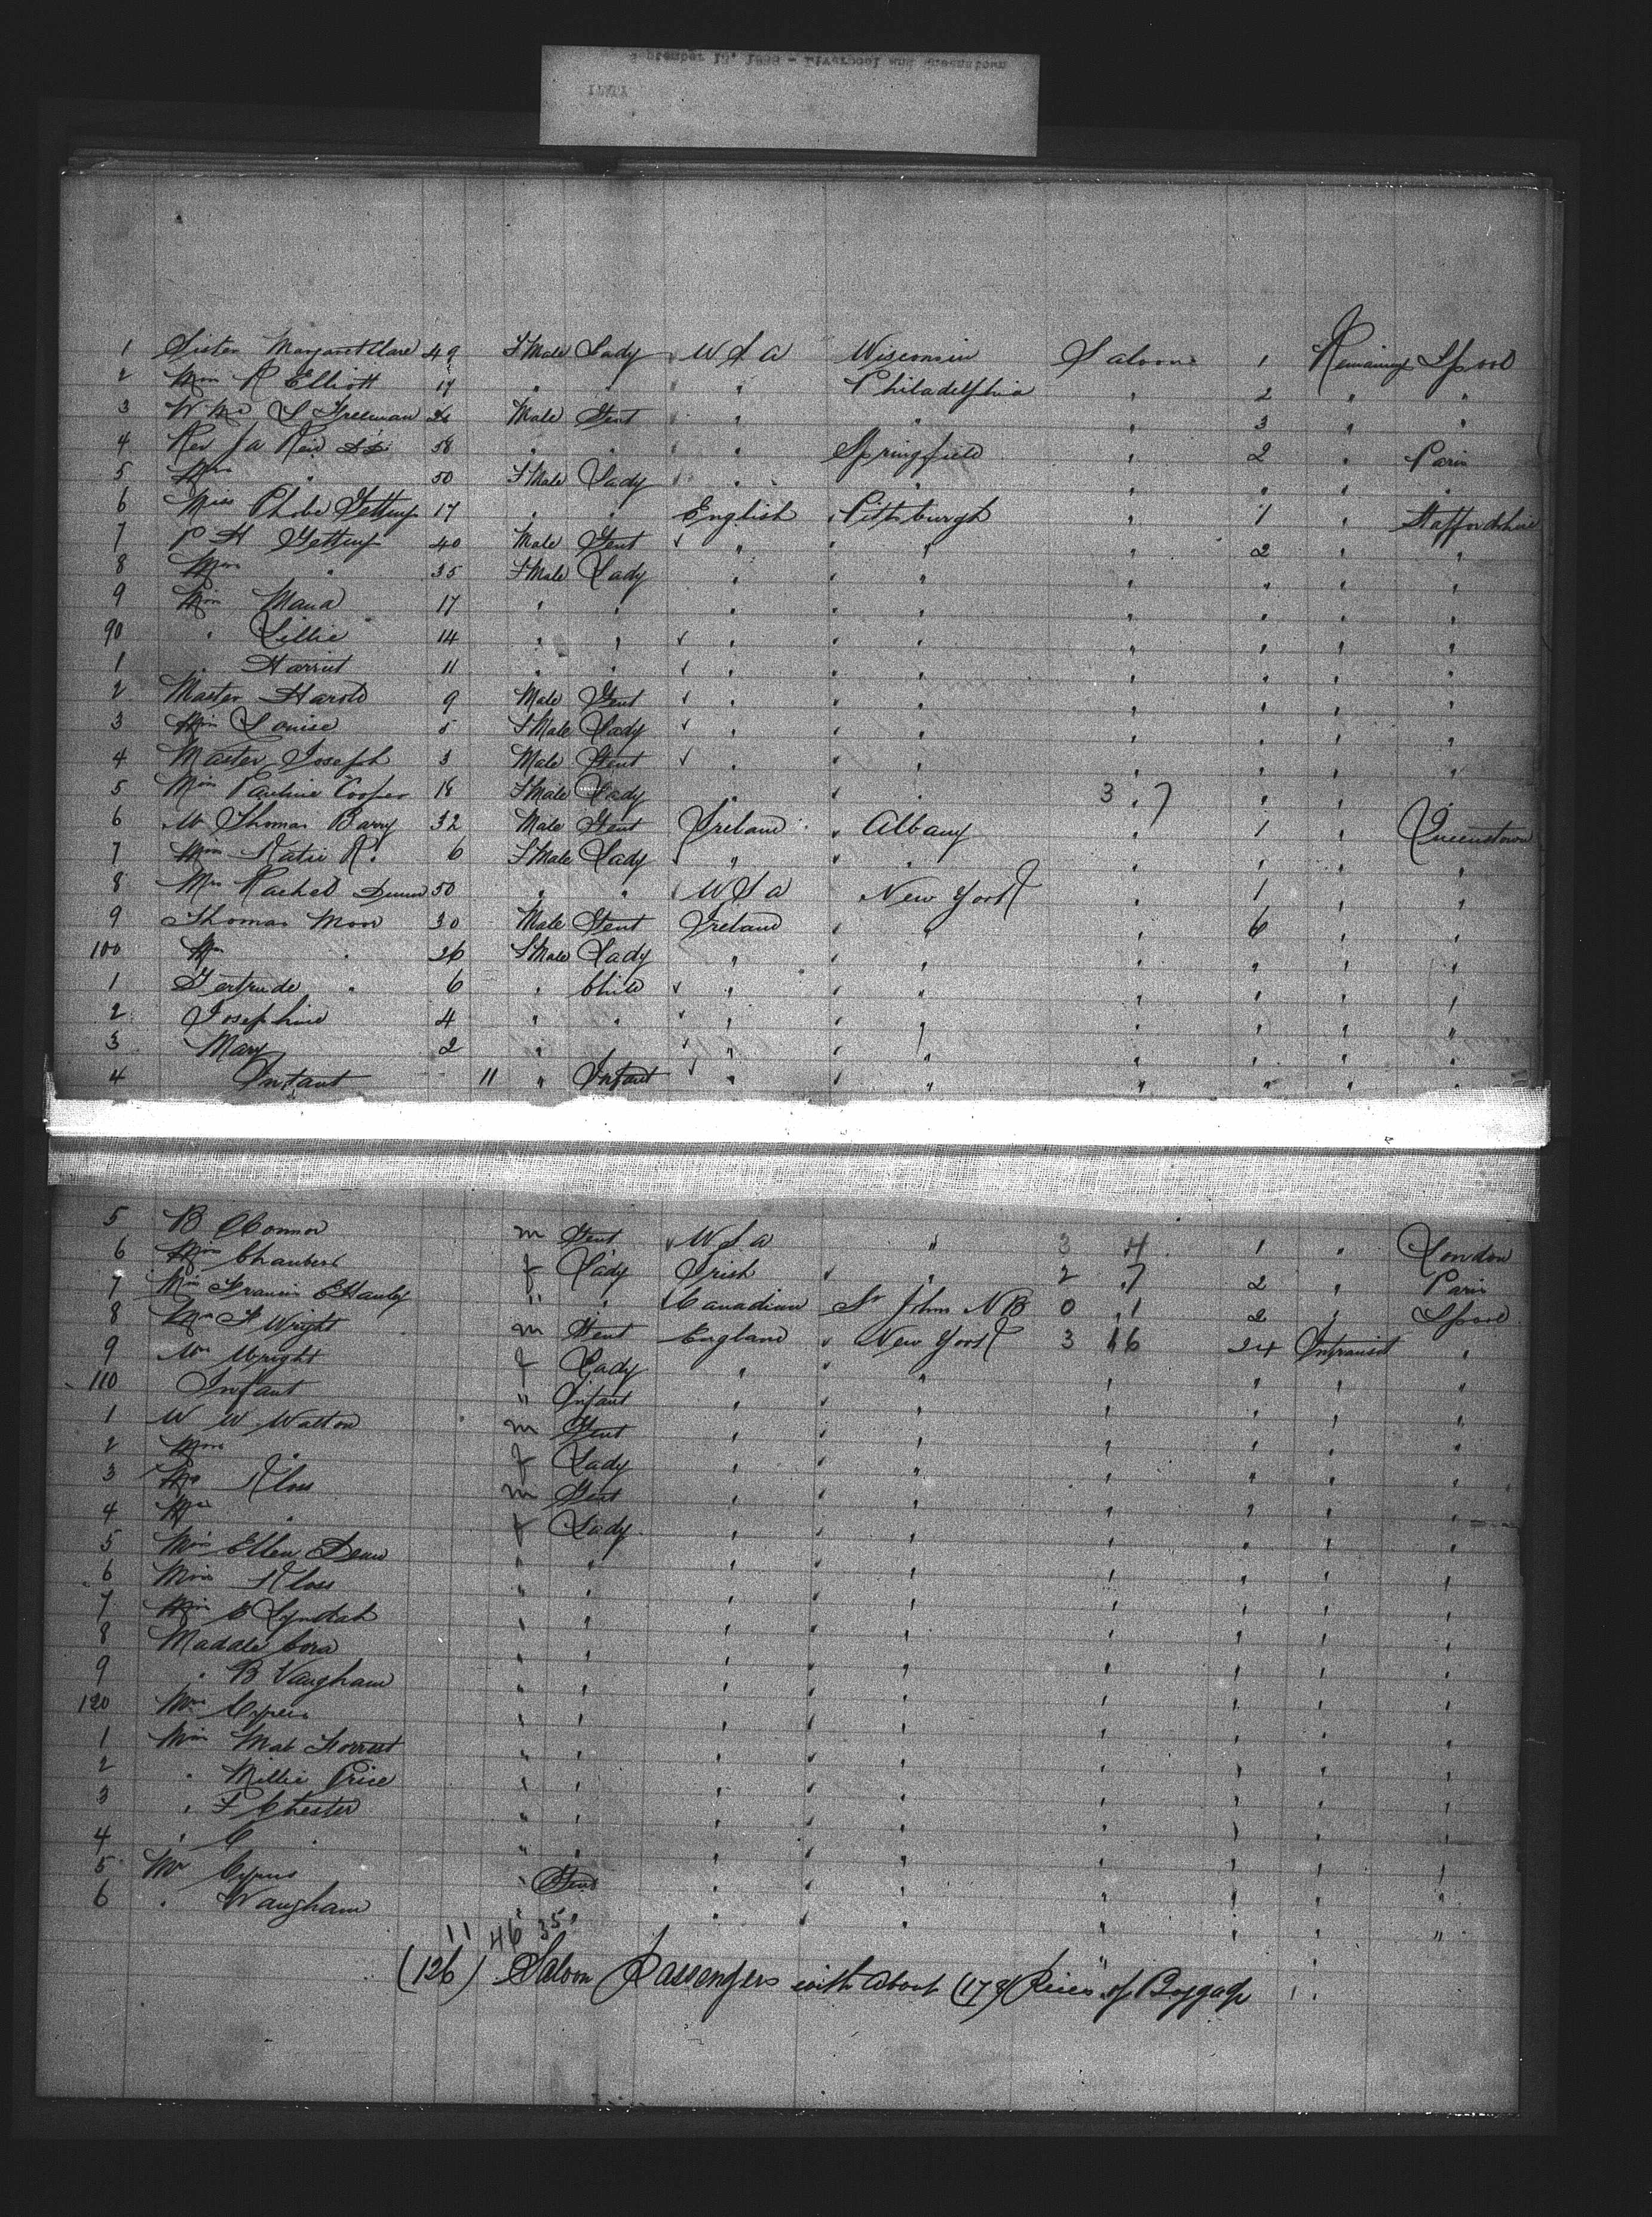 September 13, 1899 - Liverpool and Queenstown
1 Sister Margaret Clare 49 F Male Lady U S A Wisconsin Saloon 1 Remaining Lpool
2 Miss R Elliott 19 " " " " Philadelphia " 2 " "
3 Wm L Freeman 26 Male Gent " " " 3 " "
4 Rev J A Reid 58 " " " " Springfield " 2 " Paris
5 Mrs " 50 F Male Lady " " " " " " "
6 Miss Phobe Gettup 17 " " English Pittsburgh " 1 " Staffordshire
7 P H Gettup 40 Male Gent " " " 2 " "
8 Mrs " 35 F Male Lady " " " " " "
9 Miss Maud 17 " " " " " " " "
90 " Lillie 14 " " " " " " " "
1 " Harriet 11 " " " " " " " "
2 Master Harold 9 Male Gent " " " " " "
3 Miss Louise 5 F Male Lady " " " " " "
4 Master Joseph 3 Male Gent " " " " " "
5 Miss Pauline Cooper 18 F Male Lady " " 3 7 " " "
6 Mr Thomas Barry 32 Male Gent Ireland Albany " 1 " Queenstown
7 Miss Katie R. 6 F Male Lady " " " " " "
8 Mrs Rachel Dunn 50 " " U S A New York " 1 " "
9 Thomas Moor 30 Male Gent Ireland " " 6 " "
100 Mrs " 26 F Male Lady " " " " " "
1 Gertrude " 6 " Child " " " " " "
2 Josephine 4 " " " " " " " "
3 Mary 2 " " " " " " " "
4 Infant 11 " Infant " " " " " "
5 B OConnor m Gent U S A " 3 4 1 " London
6 Miss Chambers f Lady Irish " 2 7 2 " Paris
7 Miss Francis E Hanley " " Canadian St Johns N B 0 1 2 " Lpool
8 Mr F Wright m Gent England New York 3 16 24 Intransit "
9 Mrs Wright f Lady " " " " " "
110 Infant " Infant " " " " " "
1 W W Walton m Gent " " " " " "
2 Mrs " f Lady " " " " " "
3 Mr Kloss m Gent " " " " " "
4 Mrs " f Lady " " " " " "
5 Miss Ellen Dean " " " " " " " "
6 Miss Kloss " " " " " " " "
7 Miss C " " " " " " " "
8 Cora " " " " " " " "
9 " B Vaugham " " " " " " " "
120 Mrs Cyrus " " " " " " " "
1 Miss Mab Forrest " " " " " " " "
2 " Millie Price " " " " " " " "
3 " F Chester " " " " " " " "
4 " C " " " " " " " " "
5 Mr Cyrus " Gent " " " " " "
6 " Vaugham " " " " " " "
11 46 35
(126) Saloon Passengers with about (178) Pieces of Baggage